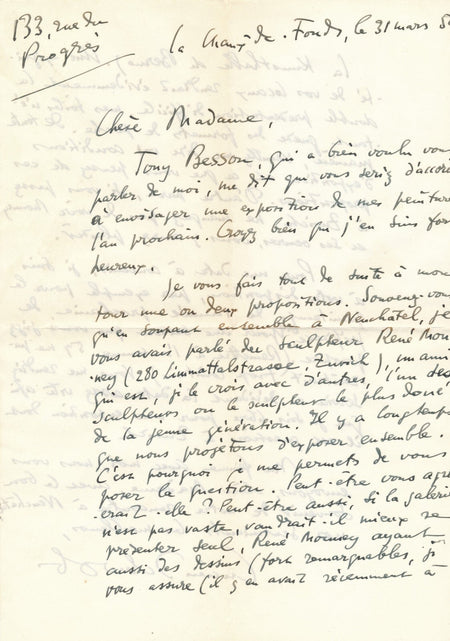 133, rue du
Progrès
La Chaux-de-Fonds, le 31 mars 5
Chère Madame,
Tony Besson, qui a bien voulu vou
parler de moi, me dit que vous seriez d'accord
à envisager une exposition de mes peintures
l'an prochain. Croyez bien que j'en suis fort
heureux.
Je vous fais tout de suite à mon
tour une ou deux propositions. Souvenez-vous
qu'en soupant ensemble à Neuchâtel, je
vous avais parlé du sculpteur René Mon-
ney (280 Limmattalstrasse, Zurich), un ami
qui est, je le crois avec d'autres, l'un des
sculpteurs ou le sculpteur le plus doué
de la jeune génération. Il y a longtemps
que nous projetons d'exposer ensemble.
C'est pourquoi je me permets de vous
poser la question. Peut-être vous agré-
erait-elle? Peut-être aussi, si la galerie
n'est pas vaste, vaudrait-il mieux se
présenter seul, René Monney ayant
aussi des dessins (fort remarquables, je
vous assure (il y en avait récemment à